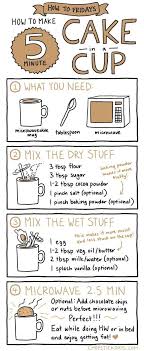 HOW TO FRIDAYS
HOW TO MAKE
5
MINUTE
CAKE
in a
CUP
1 WHAT YOU NEED
microwavable
mug
tablespoon
microwave
2 MIX THE DRY STUFF
3 tbsp flour
3 tbsp sugar
1-2 tbsp cocoa powder
1 pinch salt (optional)
1 pinch baking powder (optional)
baking powder
makes it more
3 MIX THE WET STUFF
this makes it more moist
and less stuck on the cup!
1 egg
1-2 tbsp veg oil / butter
2 tbsp milk / water
1 splash vanilla (optional)
4 MICROWAVE 2.5 MIN.
Optional: Add chocolate chips
or nuts before microwaving
Perfect!!!
Eat while doing HW or in bed
and enjoy getting fat!